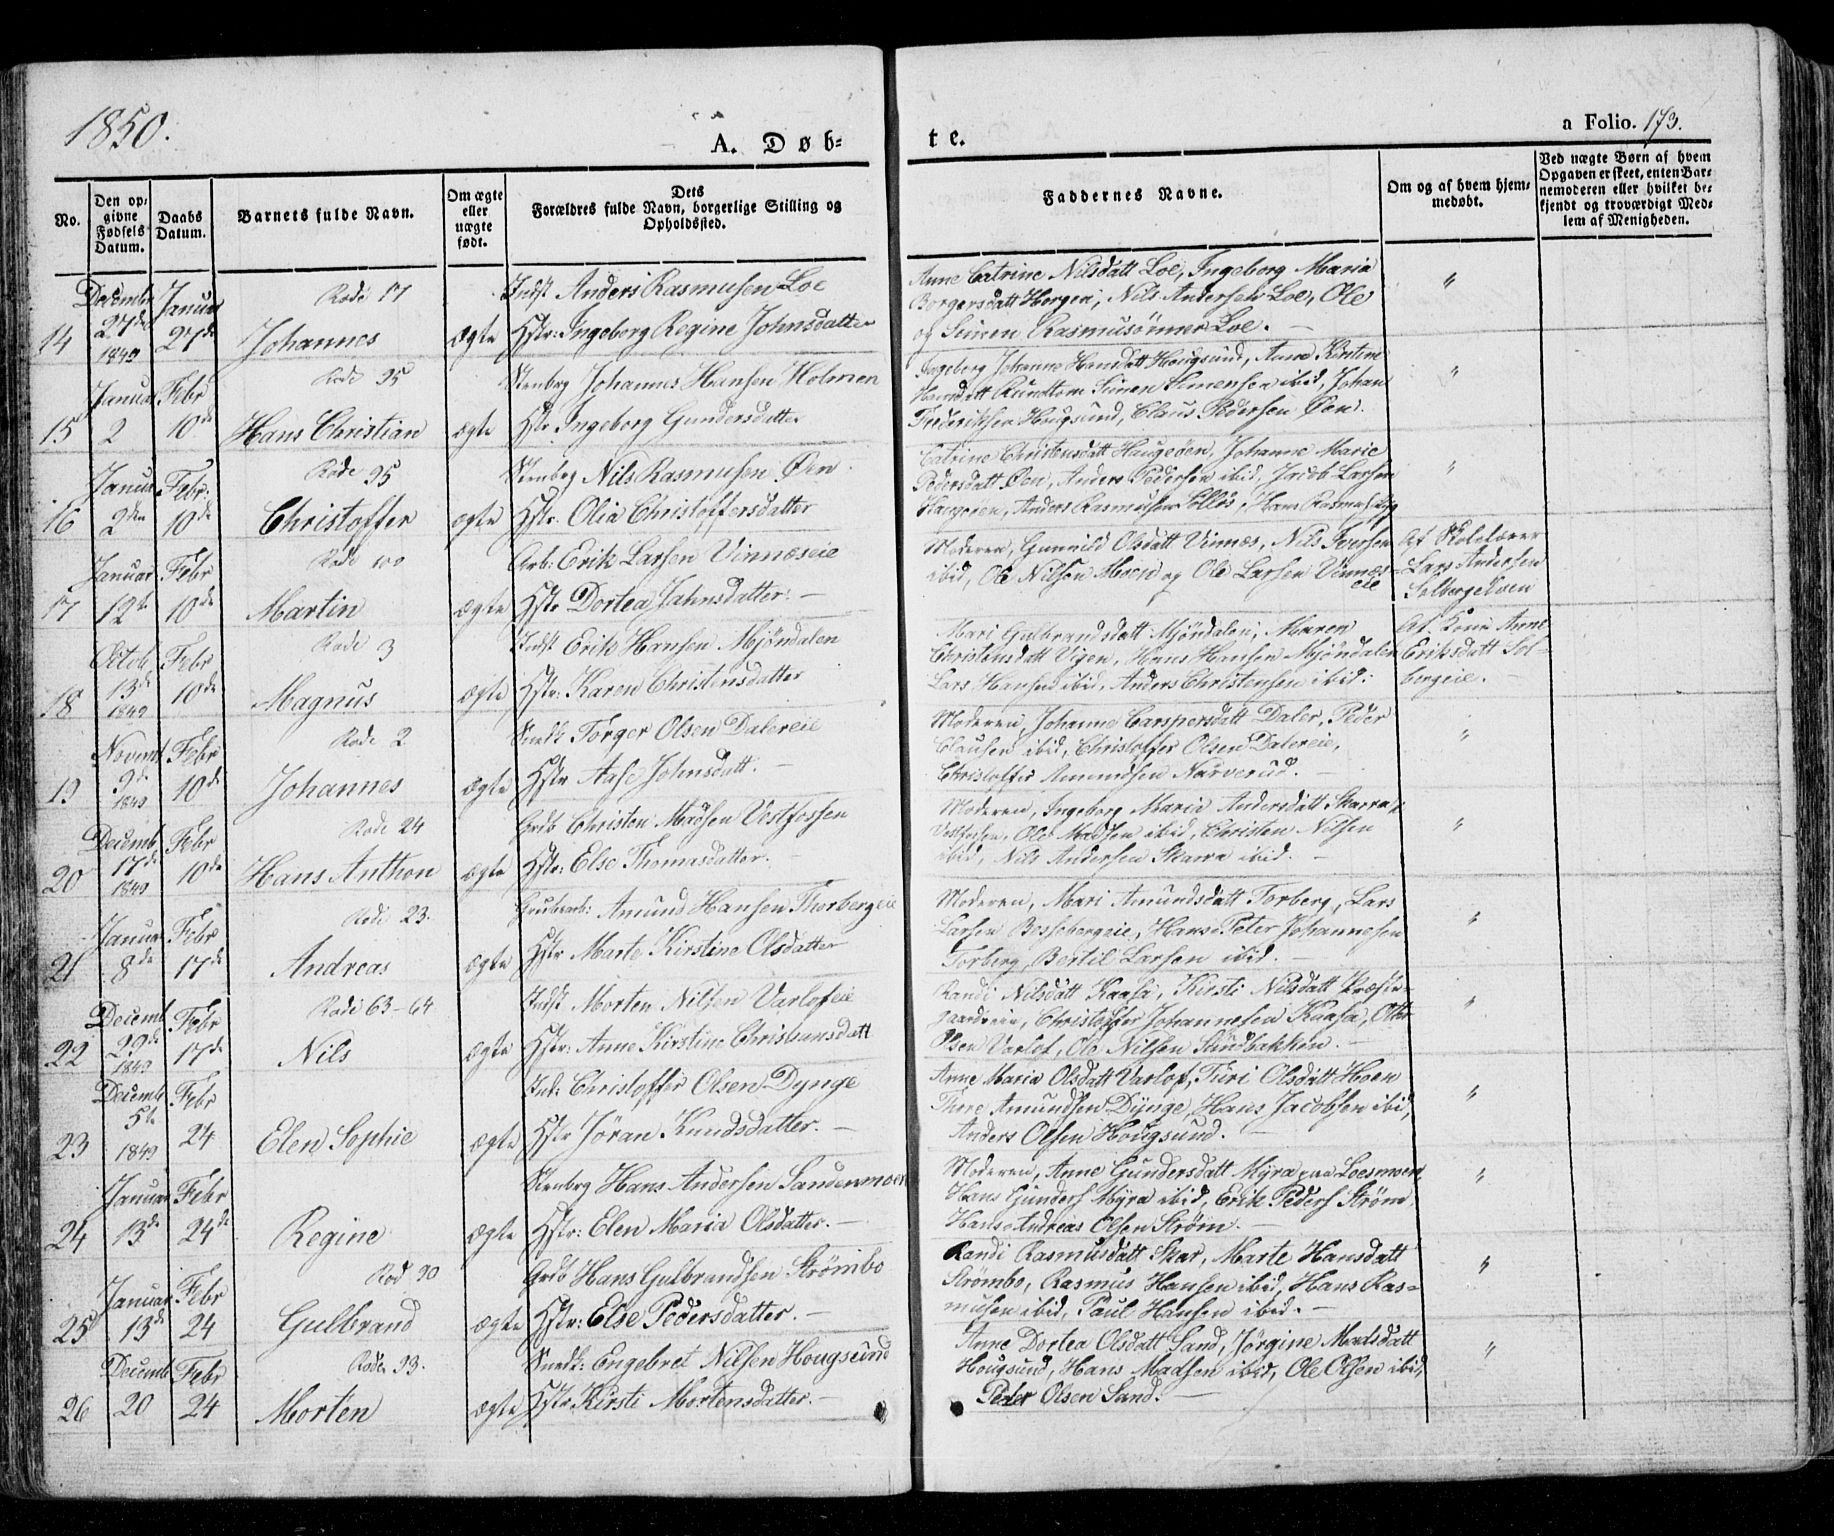 1850.
A. Døb-
te.
a Folio. 173.
No.
Den op-
givne
Fødsels
Datum.
Daabs
Datum.
Barnets fulde Navn.
Om ægte
eller
uægte
født.
Dets
Forældres fulde Navn, borgerlige Stilling og
Opholdssted.
Faddernes Navne.
Om og af hvem hjem-
medøbt.
Ved uægte Børn af hvem
Opgaven er skeet, enten Bar-
nemoderen eller hvilket be-
kjendt og troværdigt Med-
lem af Menigheden.
Decembr Januar Rode 17 Indst Anders Rasmusen Loe
14 27de 1849 27de Johannes ægte Hstr: Ingeborg Regine Johnsdatter
Anne Catrine Nilsdatt Loe, Ingeborg Maria "
Borgersdatt Horgen, Nils Andersen Loe, Ole
og Simen Rasmusønner Loe. –
Januar Febr Rode 95 Stenbrg Johannes Hansen Holmen
15 2 10de Hans Christian ægte Hstr Ingeborg Gundersdatter
Ingeborg Johanne Hansdatt Hougsund, Anne Kirstine "
Hansdatt Rundtom Simen Simensen ibid, Johan
Frederiksen Hougsund, Claus Pedersen Øen.
Januar Febr. Rode 95 Stenbrg Nils Rasmusen Øen.
16 2den 10de Christoffer ægte Hstr. Olia Christoffersdatter
Catrine Christensdatt Haugeøen, Johanne Marie "
Pedersdatt Øen, Anders Pedersen ibid, Jacob Larsen
Haugeøen, Anders Rasmusen, Hans Rasmus
Januar Febr Rode 100 Arb: Erik Larsen Vinnæseie
17 12te 10de Martin ægte Hstr Dortea Jahnsdatter. –
Moderen, Gunnild Olsdatt Vinnæs, Nils Iversen Af Skolelærer
ibid, Ole Nilsen Moen og Ole Larsen Vinnæs- Lars Andersen
eie Solbergelven
Octob Febr Rode 3 Indst Erik Hansen Mjöndalen
18 13de 1849 10de Magnus ægte Hstr: Karen Christensdatter
Mari Gulbrandsdatt Mjöndalen, Maren Af Kone Anne
Christensdatt Vigen, Hans Hansen Mjöndalen Eriksdatt Sol-
Lars Hansen ibid, Anders Christensen ibid: bergeie. –
Novemb Febr Rode 2 Torger Olsen Dalereie
19 9de 1849 10de Johannes ægte Hstr Aase Johnsdatt. –
Moderen, Johanne Carspersdatt Daler, Peder "
Clausen ibid, Christoffer Olsen Dalereie,
Christoffer Amundsen Narverud. –
Decemb Febr Rode 24 Grdb Christen Madsen Vestfossen
20 17de 1849 10de Hans Anthon ægte Hstr: Else Thomasdatter. –
Moderen, Ingeborg Maria Andersdatt Skarra
Vestfossen, Ole Madsen ibid, Christen Nilsen "
ibid, Nils Andersen Skarra ibid. –
Januar Febr Rode 23. Grubearb: Amund Hansen Thorbergeie
21 8de 17de Andreas ægte Hstr Marte Kirstine Olsdatter
Moderen, Mari Amundsdatt Torberg, Lars "
Larsen Bossebergeie, Hans Peter Johannesen
Torberg, Bertil Larsen ibid. –
Decemb Febr Rode 63–64 Indst Morten Nilsen Varlofeie
22 29de 1849 17de Nils ægte Hstr: Anne Kirstine Christiansdatt
Randi Nilsdatt Kaasa, Kirsti Nilsdatt Præste- "
gaardseie, Christoffer Johannesen Kaasa, Otter
Olsen Varlof, Ole Nilsen Sandbakken. –
Decemb Febr Ind: Christoffer Olsen Dynge
23 5te 1849 24 Elen Sophie ægte Hstr Jöran Knudsdatter. –
Anne Maria Olsdatt Varlof, Turi Olsdatt Hoen "
Thore Amundsen Dynge, Hans Jacobsen ibid,
Anders Olsen Hougsund. –
Januar Febr Stenbrg Hans Andersen Sandenmoen
24 13de 24de Regine ægte Hstr: Elen Maria Olsdatter. –
Moderen, Anne Gundersdatt Myra paa Loesmoen, "
Hans Gunders Myra ibid, Erik Peders Strøm,
Hans Andreas Olsen Strøm. –
Januar Febr Rod 90 Grdb Hans Gulbrandsen Strömbo
25 13de 24 Gulbrand ægte Hstr: Else Pedersdatter. –
Randi Rasmusdatt Skar, Marte Hansdatt "
Strömbo, Rasmus Hansen ibid, Hans Ras-
musen ibid, Paul Hansen ibid. –
Decemb Febr Rode 93. Snedk: Engebret Nilsen Hougsund
26 20 24 Morten ægte Hstr Kirsti Mortensdatter. –
Anne Dortea Olsdatt Sand, Jörgine Madsdatt "
Hougsund, Hans Madsen ibid, Ole Olsen ibid,
Peder Olsen Sand. –